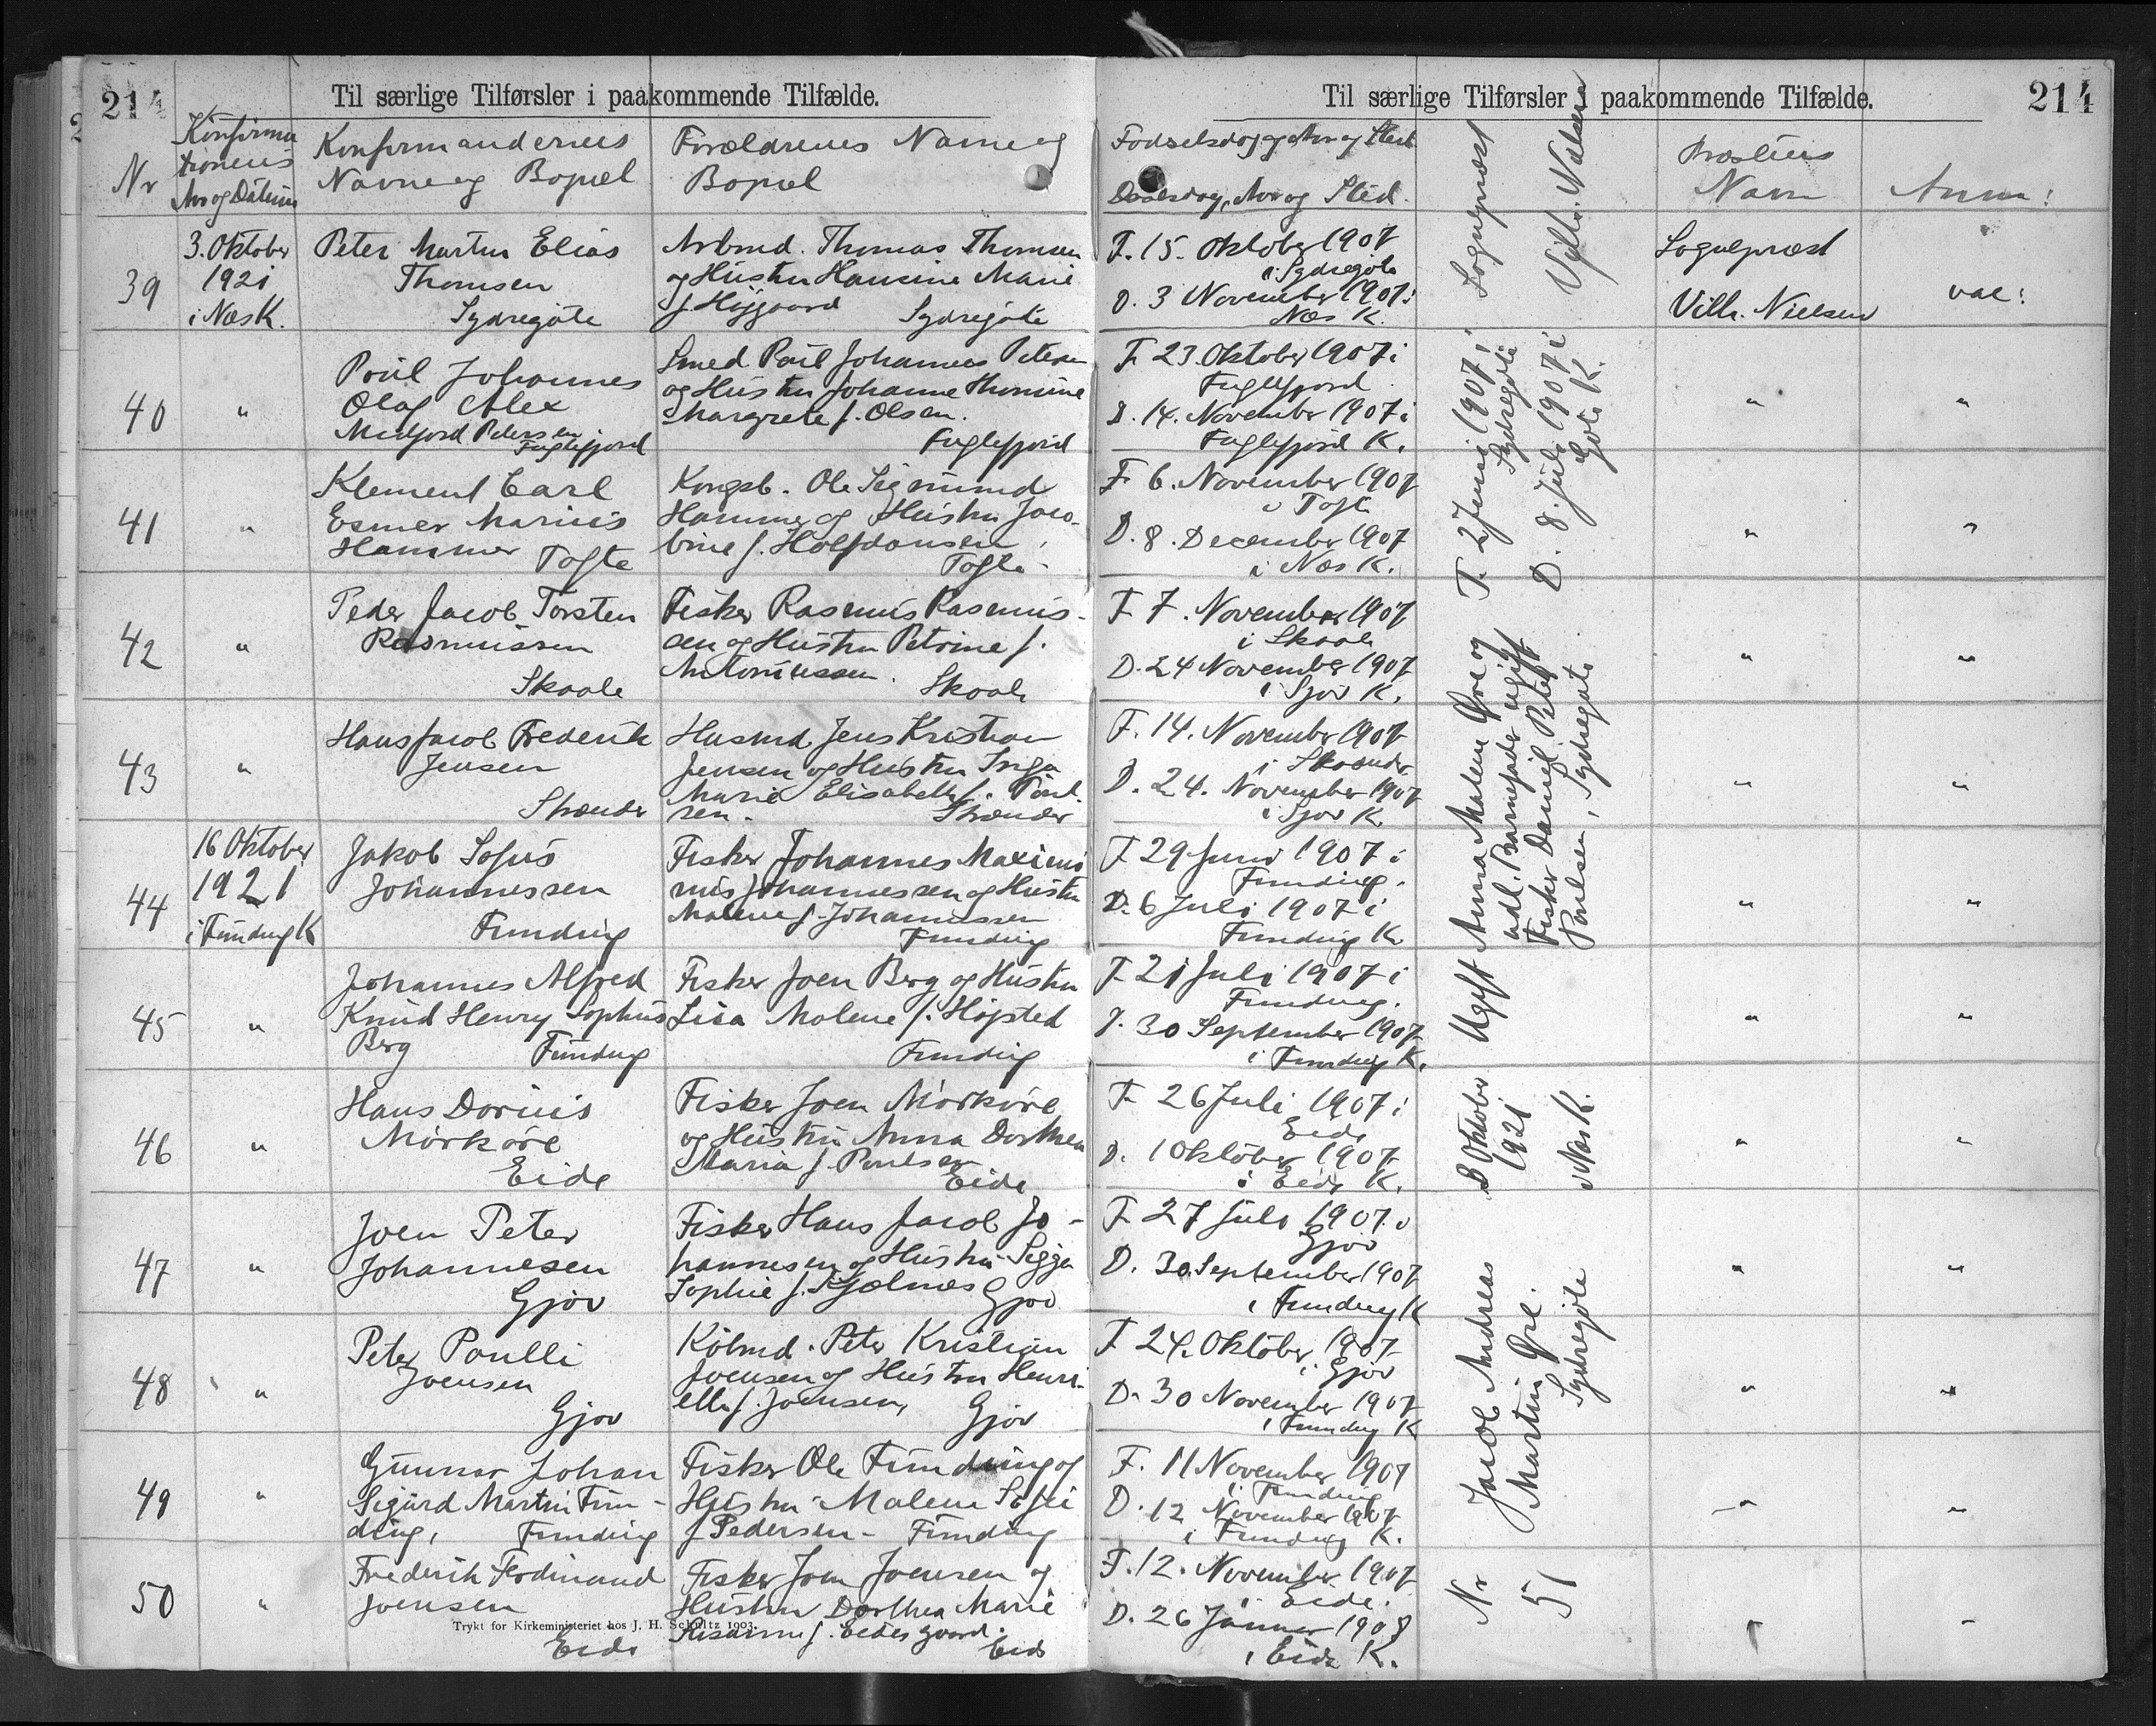 214
Til særlige Tilførsler i paakommende Tilfælde.
Til særlige Tilførsler i paakommende Tilfælde.
214
Nr
Konfirma
tionens
Aar og Datum
Konfirmandernes
Navne og Bopæl
Forældrenes Navne og
Bopæl
Fødselsdag og Aar og Sted
Daabsdag, Aar og Sted.
Præstens
Navn
Anm:
39
3. Oktober
1921
i Næs K.
Peter Martin Elias
Thomsen
Sydregöte
Arbmd. Thomas Thomsen
og Hustru Hansine Marie
f. Højgaard Sydregöte
F. 15. Oktober 1907
i Sydregöte
D. 3 November 1907 i
Næs K.
Sognepræst
Vilh. Nielsen
vac:
40
"
Poul Johannes
Olaf Alex
Midjord Petersen
Fuglefjord
Smed Poul Johannes Petersen
og Hustru Johanne Thomine
Margrete f. Olsen.
Fuglefjord
F. 23. Oktober 1907 i
Fuglefjord
D. 14. November 1907 i
Fuglefjord K.
"
"
41
"
Klement Carl
Esmer Marius
Hammer Tofte
Kongsb. Ole Sigmund
Hammer og Hustru Jaco-
bine f. Halfdansen,
Tofte
F. 6. November 1907
i Tofte
D. 8. December 1907
i Næs K.
"
"
42
"
Peder Jacob Torsten
Rasmussen
Skaale
Fisker Rasmus Rasmus-
sen og Hustru Petrine f.
Antoniussen. Skaale
F. 7. November 1907
i Skaale
D. 24 November 1907
i Sjov K.
"
"
43
"
Hans Jacob Frederik
Jensen
Strænder
Husmd. Jens Kristian
Jensen og Hustru Inga
Marie Elisabeth f. Poul-
sen. Strænder
F. 14. November 1907
i Skaander
D. 24. November 1907
i Sjov K
"
"
44
16 Oktober
1921
i Funding K
Jakob Sofus
Johannessen
Funding
Fisker Johannes Maximi
nus Johannessen og Hustru
Malene f. Johannessen
Funding
F 29 Juni 1907 i
Funding.
D. 6 Juli 1907 i
Funding K
"
"
45
"
Johannes Alfred
Knud Henry Sophus
Berg Funding
Fisker Joen Berg og Hustru
Lisa Malene f. Højsted
Funding
F. 21 Juli 1907 i
Funding.
D. 30 September 1907
i Funding K.
"
"
46
"
Hans Dorius
Mörköre
Eide
Fisker Joen Mörköre
og Hustru Anna Dorthea
Maria f. Poulsen
Eide
F. 26 Juli 1907 i
Eide
D. 1 Oktober 1907
i Eide K.
"
"
47
"
Joen Peter
Johannesen
Gjov
Fisker Hans Jacob Jo-
hannesen og Hustru Sigga
Sophie f. Kjølnes Gjov
F. 27 Juli 1907 i
Gjov
D. 30. September 1907
i Funding K
"
"
48
"
Peter Poulli
Joensen
Gjov
Købmd. Peter Kristian
Joensen og Hustru Henri-
ette f. Joensen, Gjov
F 24. Oktober 1907
i Gjov
D. 30 November 1907
i Funding K
"
"
49
"
Gunnar Johan
Sigurd Martin Fun-
ding, Funding
Fisker Ole Funding og
Hustru Malene Sofie
f. Pedersen - Funding
F. 11 November 1907
i Funding
D. 12 November 1907
i Funding K.
"
"
50
"
Frederik Ferdinand
Joensen
Eide
Fisker Joen Joensen og
Hustru Dorthea Marie
f. Eidesgaard.
Eide
F. 12. November 1907
i Eide.
D. 26 Januar 1908
i Eide K.
"
"
Nr
51
Jacob Andreas
Martin Øre.
Sydregöte
3 Oktober
1921
i Næs K.
Ugift Anna Malene Øre og
udl. Barnefader ugift
Fisker Daniel Peter
Poulsen, Sydregöte
F. 2 Juni 1907 i
Sydregöte
D. 8. Juli 1907 i
Göte K.
Sognepræst
Vilh. Nielsen
Trykt for Kirkeministeriet hos J. H. Schultz 1903.